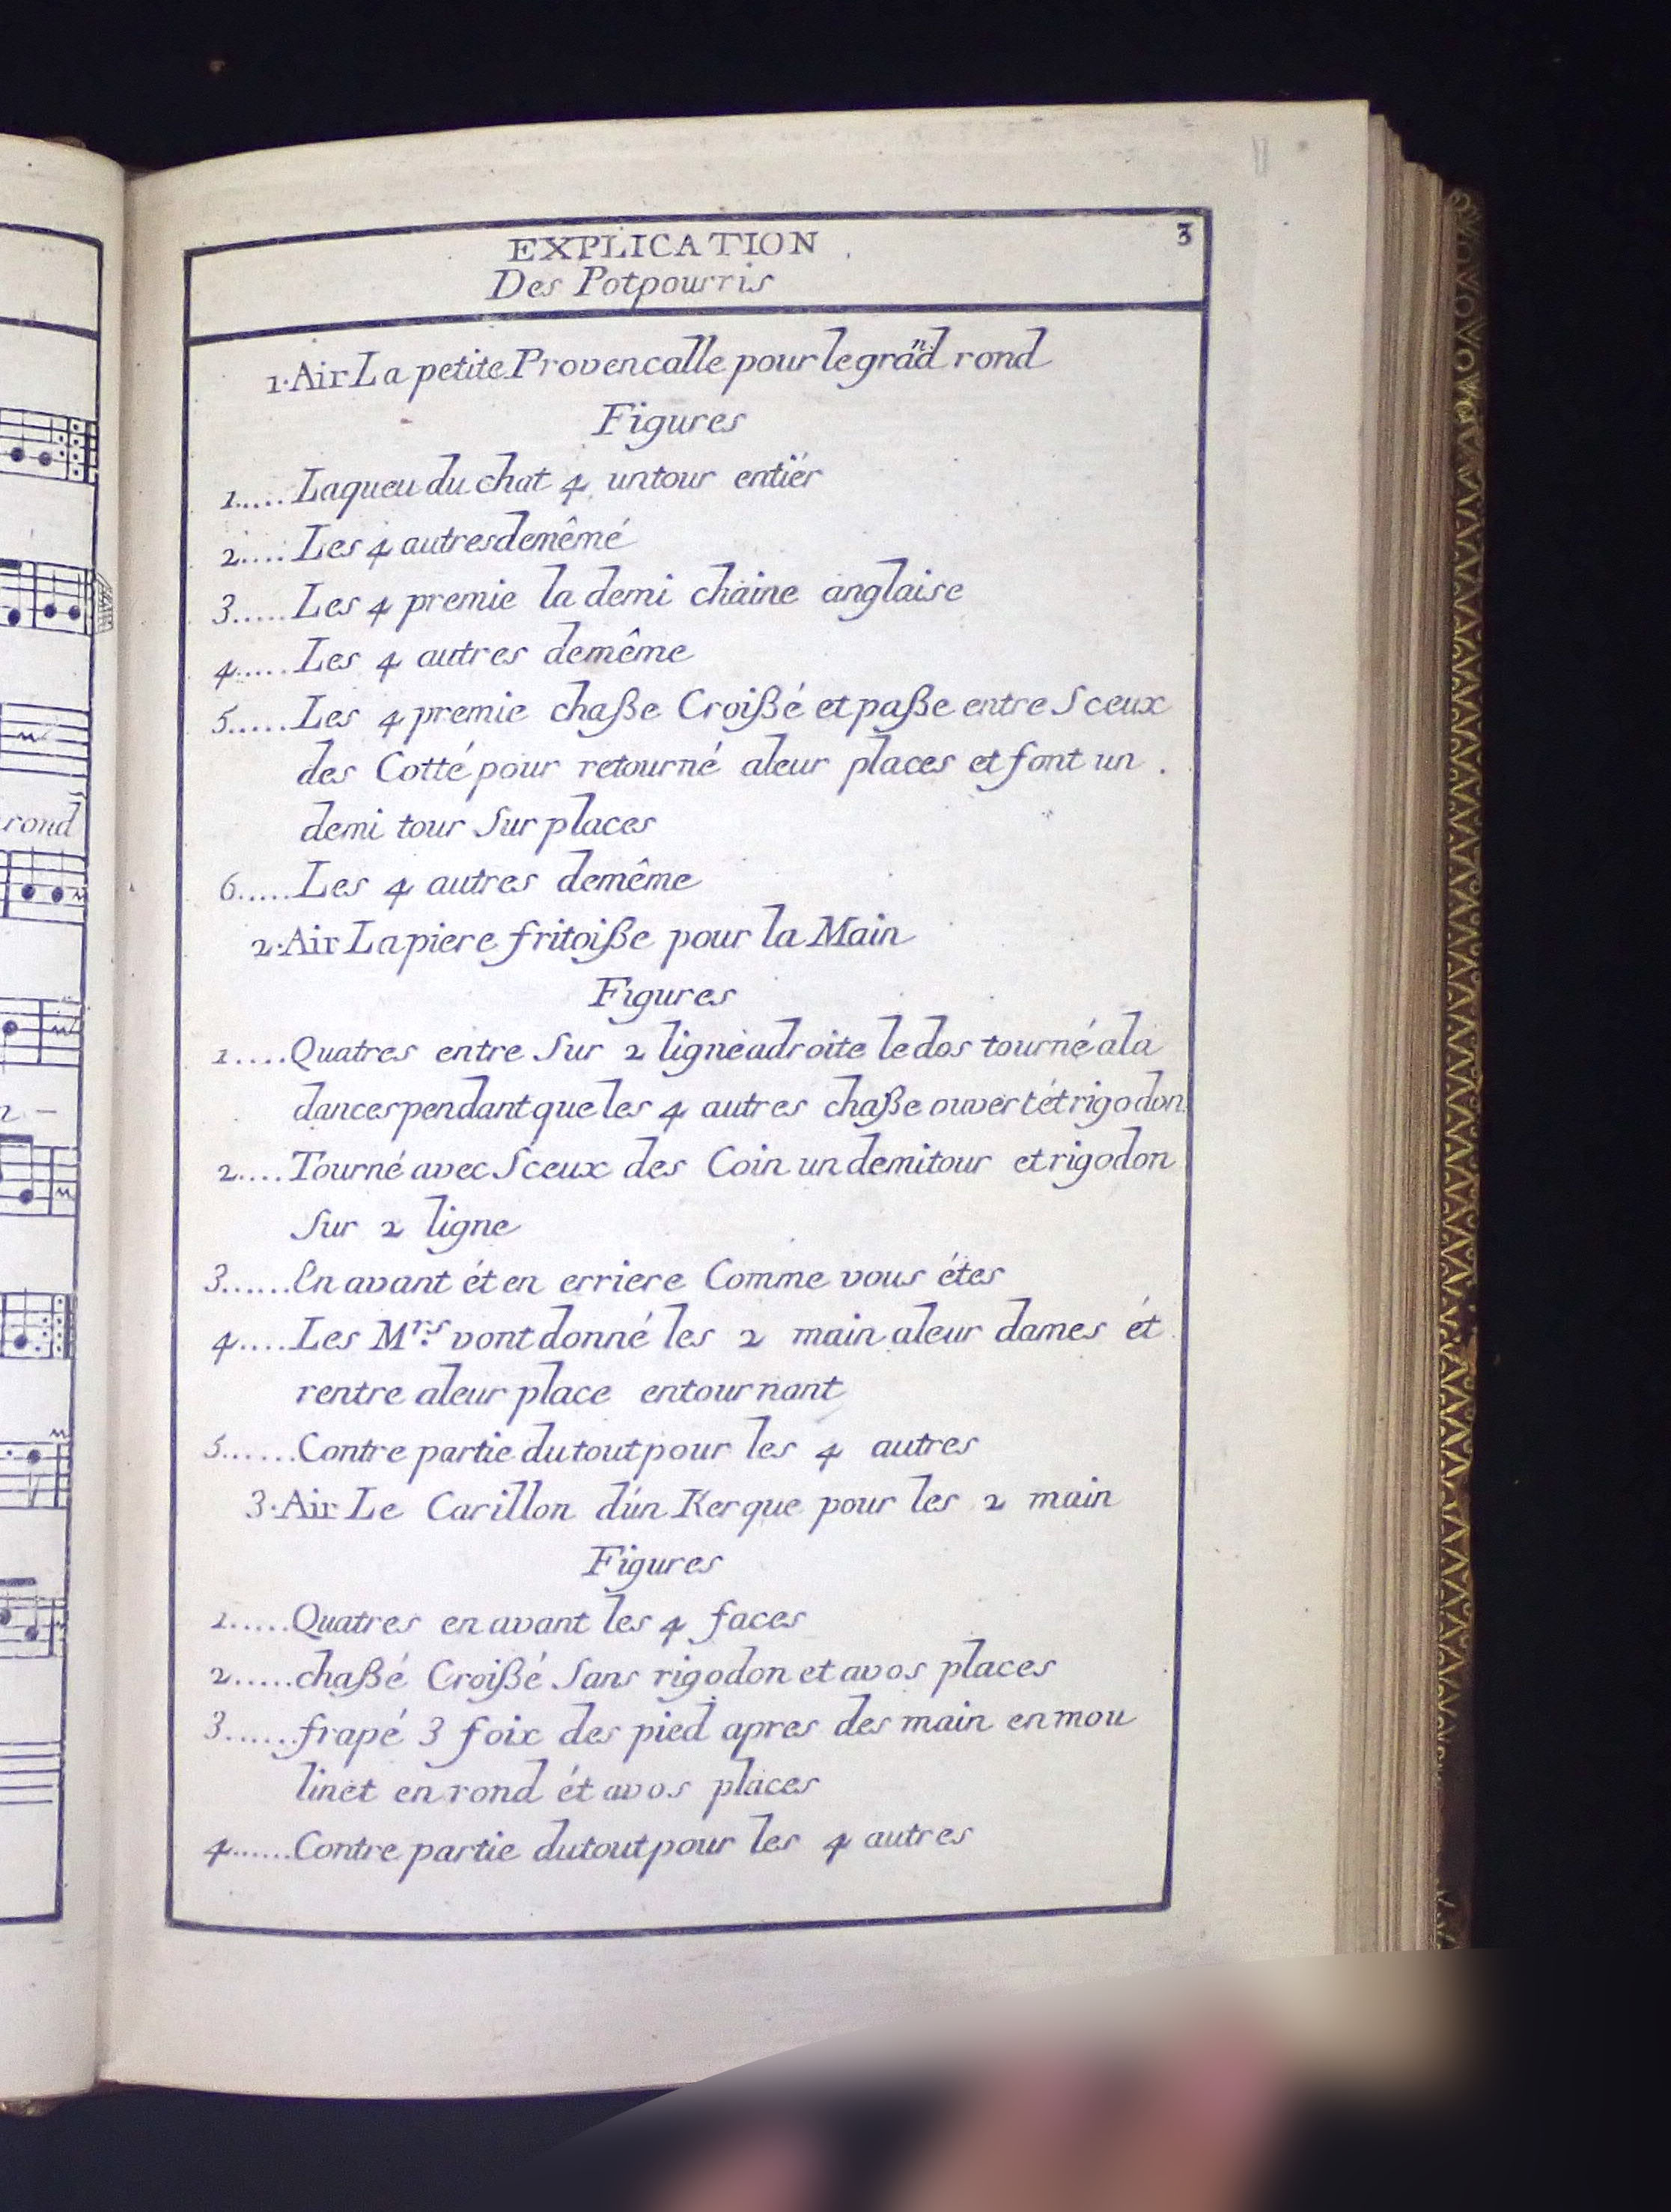 3
EXPLICATION
Des Potpourris
1. Air La petite Provencalle pour le grãd rond
Figures
1..... Laqueu du chat 4 un tour entiér
2.... Les 4 autres demêmé
3..... Les 4 premie la demi chaine anglaise
4..... Les 4 autres demême
5..... Les 4 premie chaße Croißé et paße entre Sceux
des Cotté pour retourné aleur places et font un
demi tour Sur places
6..... Les 4 autres demême
2. Air La piere fritoiße pour la Main
Figures
1.... Quatres entre Sur 2 ligne adroite le dos tourné ala
dances pendant que les 4 autres chaße ouvert ét rigodon
2.... Tourné avec Sceux des Coin un demi tour et rigodon
Sur 2 ligne
3...... En avant ét en erriere Comme vous étes
4.... Les Mrs. vont donné les 2 main aleur dames ét
rentre aleur place entournant
5...... Contre partie du tout pour les 4 autres
3. Air Le Carillon dún Kerque pour les 2 main
Figures
1..... Quatres en avant les 4 faces
2..... chaßé Croißé Sans rigodon et avos places
3...... frapé 3 foix des pied apres des main en mou
linet en rond ét avos places
4...... Contre partie du tout pour les 4 autres
rond